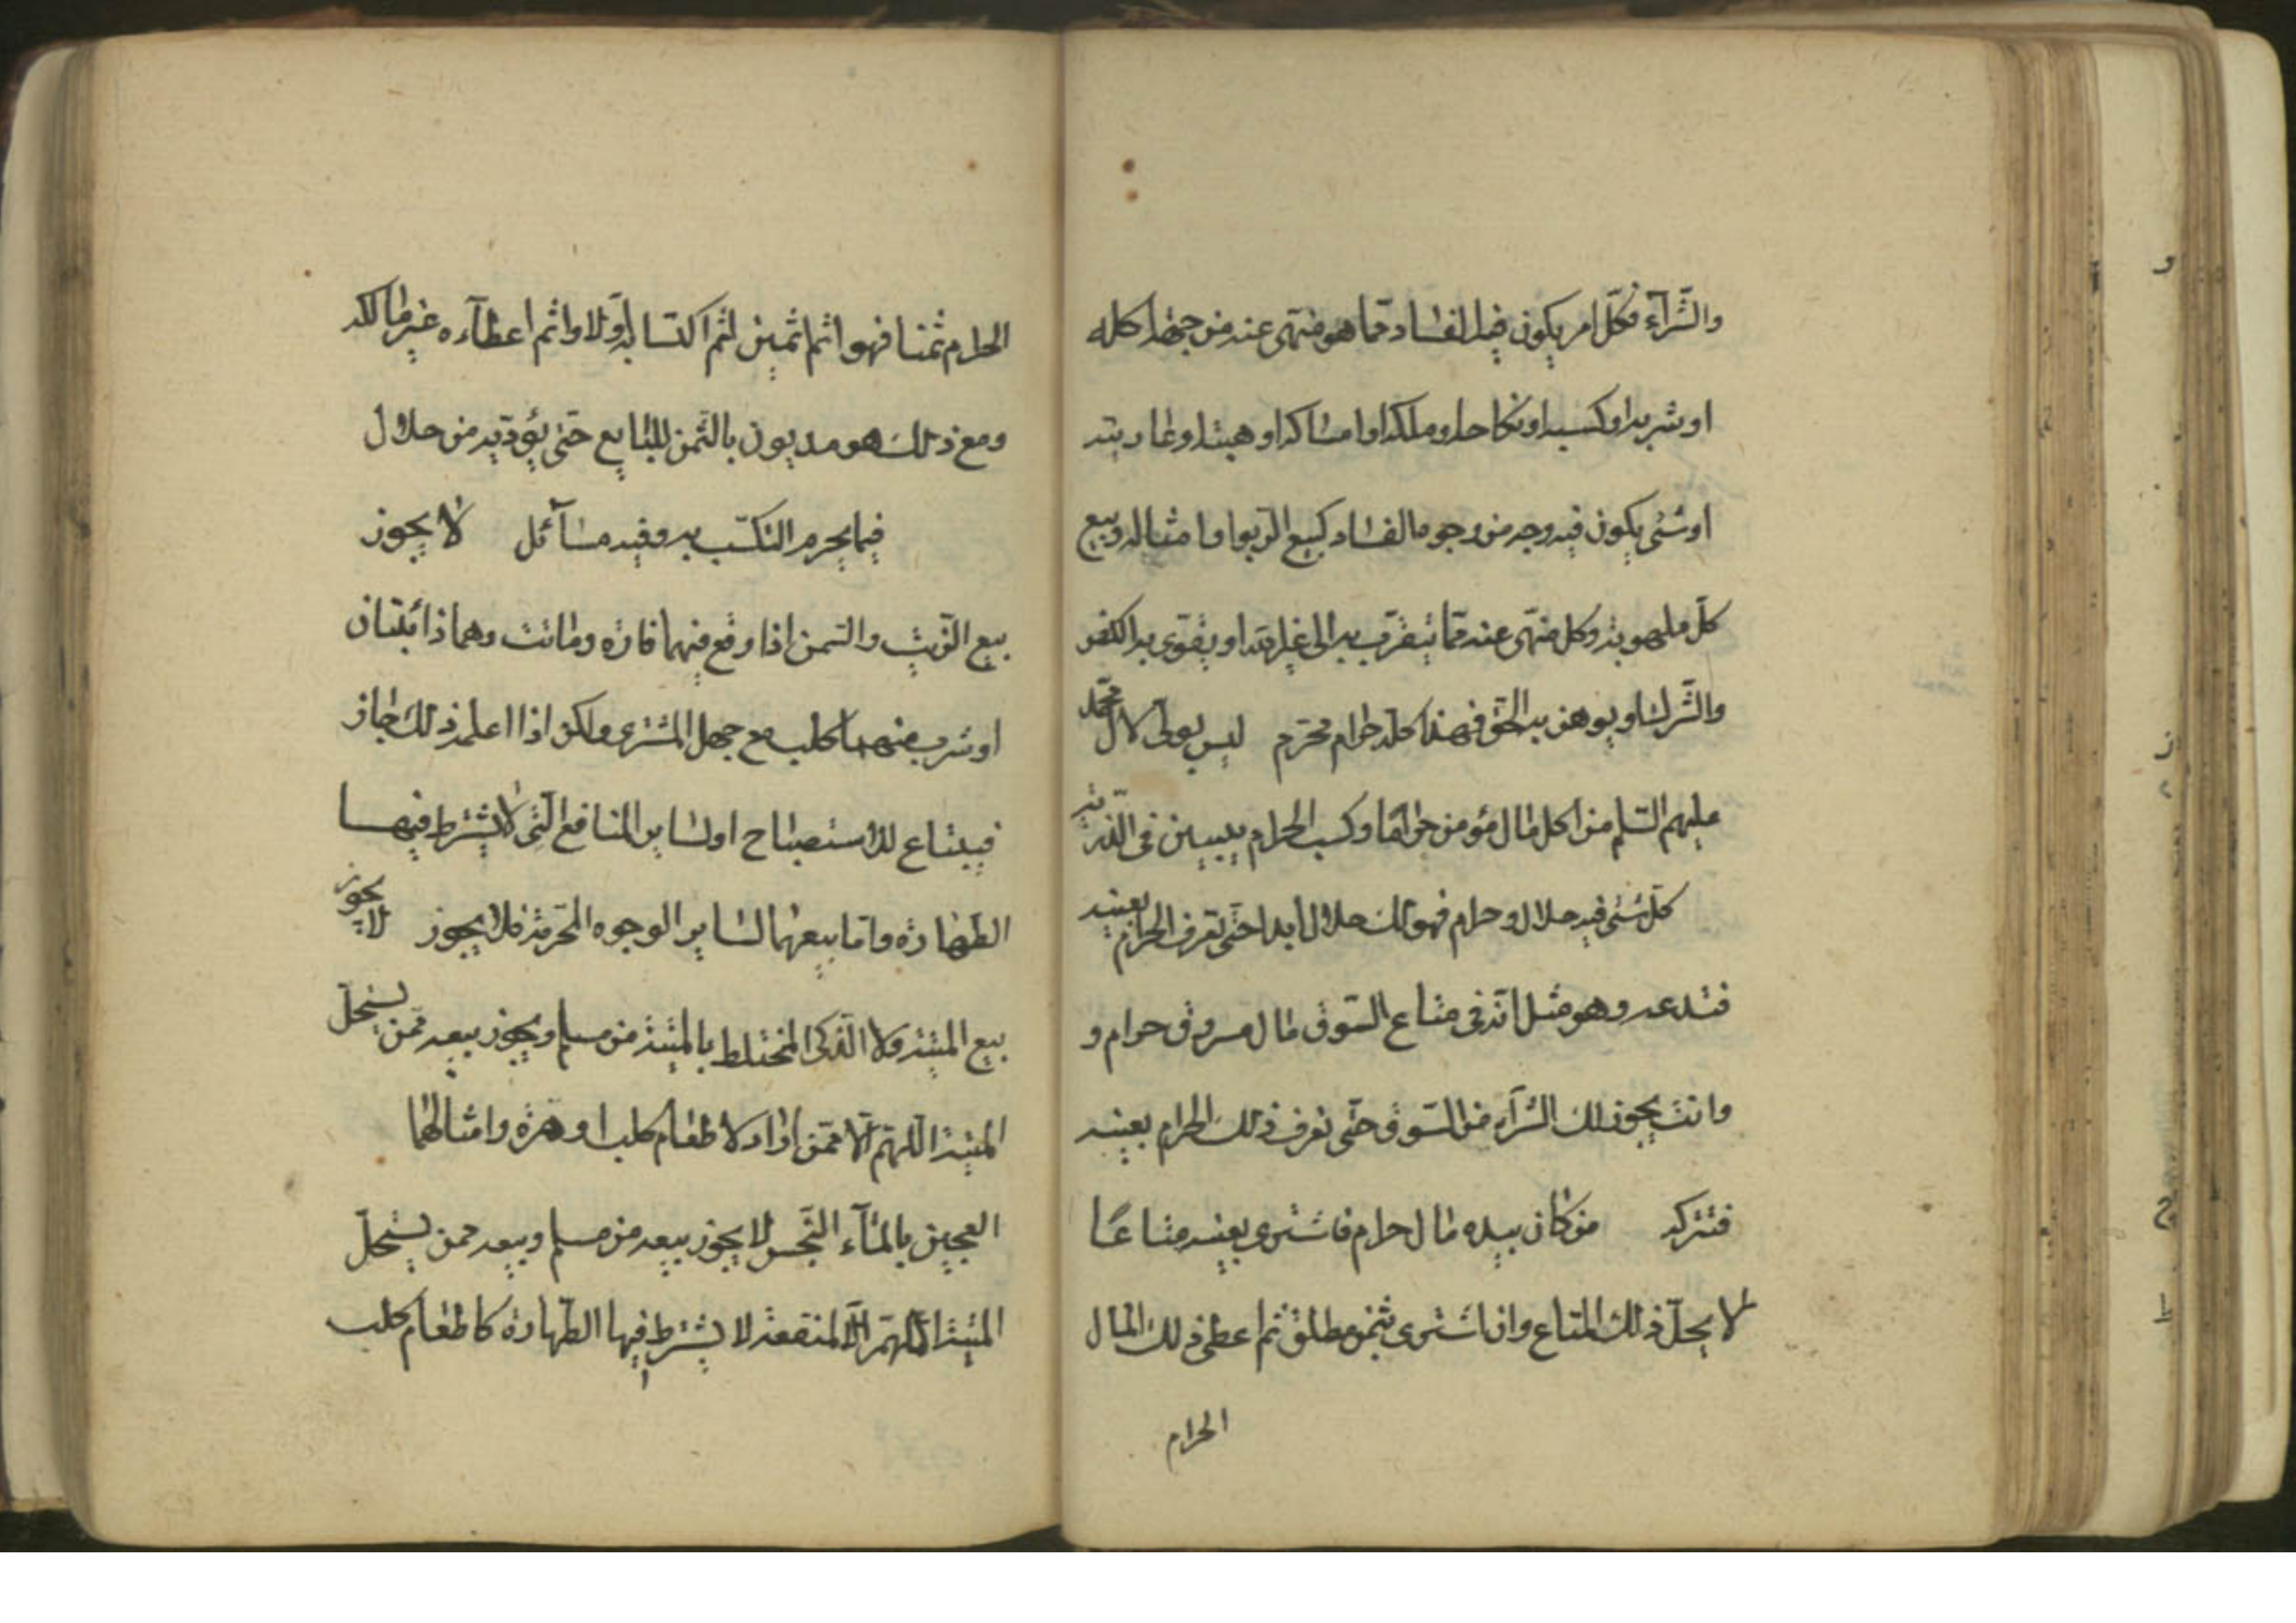 والشّرآء فكلّ امر يكون فيه الفساد ممّا هو منهى عنه من جهة اكله
او شربه او كسبه او نكاحه او ملكه او امساكه او هبته او عاريته
او شئى يكون فيه وجه من وجوه الفساد كبيع الرّبوا وامثاله وبيع
كلّ ملهو به وكل منهى عنه ممّا يتقرّب به الى غير الله او يقوى به الكفر
والشّرك او يوهن به الحقّ فهذا كلّه حرام محرّم ليس بولىّ لال محمّد
عليهم السّلم من اكل مال مؤمن حرامًا وكسب الحرام يبين فى الذّريّة
كلّ شئى فيه حلال وحرام فهو لك حلال ابدا حتّى تعرف الحرام بعينه
فتدعه وهو مثل انّه فى متاع السّوق مال مسروق حرام و
وانت يجوز لك الشّرآء من السّوق حتّى تعرف ذلك الحرام بعينه
فتتركه من كان بيده مال حرام فاشترى بعينه متاعًا
لا يحلّ ذلك المتاع وان اشترى بثمن مطلق ثم اعطى ذلك المال
الحرام
الحرام ثمنا فهو اثم اثمين اثم اكتسابه اوّلا واثم اعطآءه غير مالكه
ومع ذلك هو مديون بالثّمن للبايع حتى يؤدّيه من حلال
فيما يحرم التكسّب به وفيه مسآئل لا يجوز
بيع الزّيت والسّمن اذا وقع فيهما فارة وماتت وهما ذائبتان
او شرب منهما كلب مع جهل المشترى ولكن اذا اعلمه ذلك جاز
فيبتاع للاستصباح او لساير المنافع الّتى لا يشترط فيها
الطّهارة وامّا بيعهما لساير الوجوه المحرّمة فلا يجوز لا يجوز
بيع الميتة ولا الذّكى المختلط بالميتة من مسلم ويجوز بيعه ممّن يستحلّ
الميتة اللّهمّ الّا ممّن اراد لاطعام كلب او هرّة وامثالهما
العجين بالمآء النّجس لا يجوز بيعه من مسلم وبيعه ممن يستحلّ
الميتة اللّهمّ الّا لمنفعة لا يشترط فيها الطّهارة كاطعام كلب